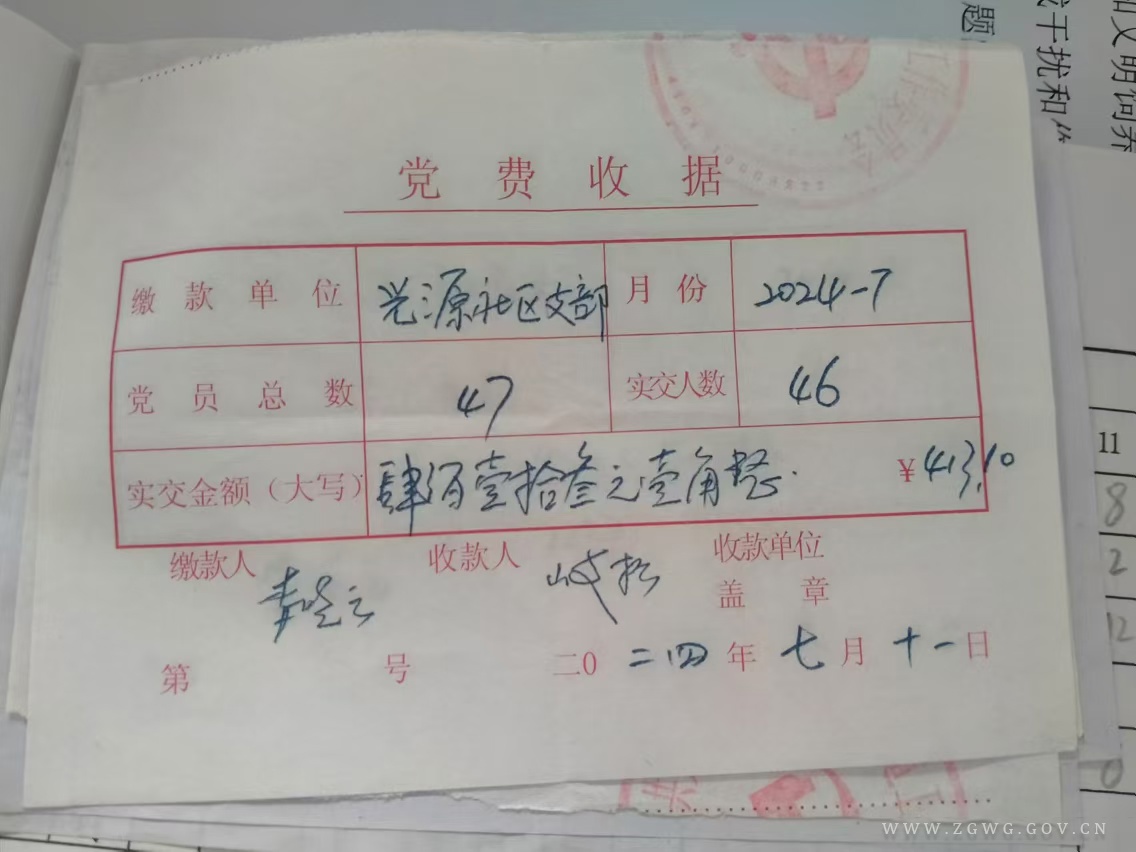 党费收据
缴款单位 兴源社区支部 月份 2024-7
党员总数 47 实交人数 46
实交金额（大写） 肆佰壹拾叁元壹角整. ¥413.10
缴款人 收款人 收款单位
盖章
第 号 二0二四年七月十一日
题
干扰和
和文明饲养
11
8
2
12
0
WWW.ZGWG.GOV.CN